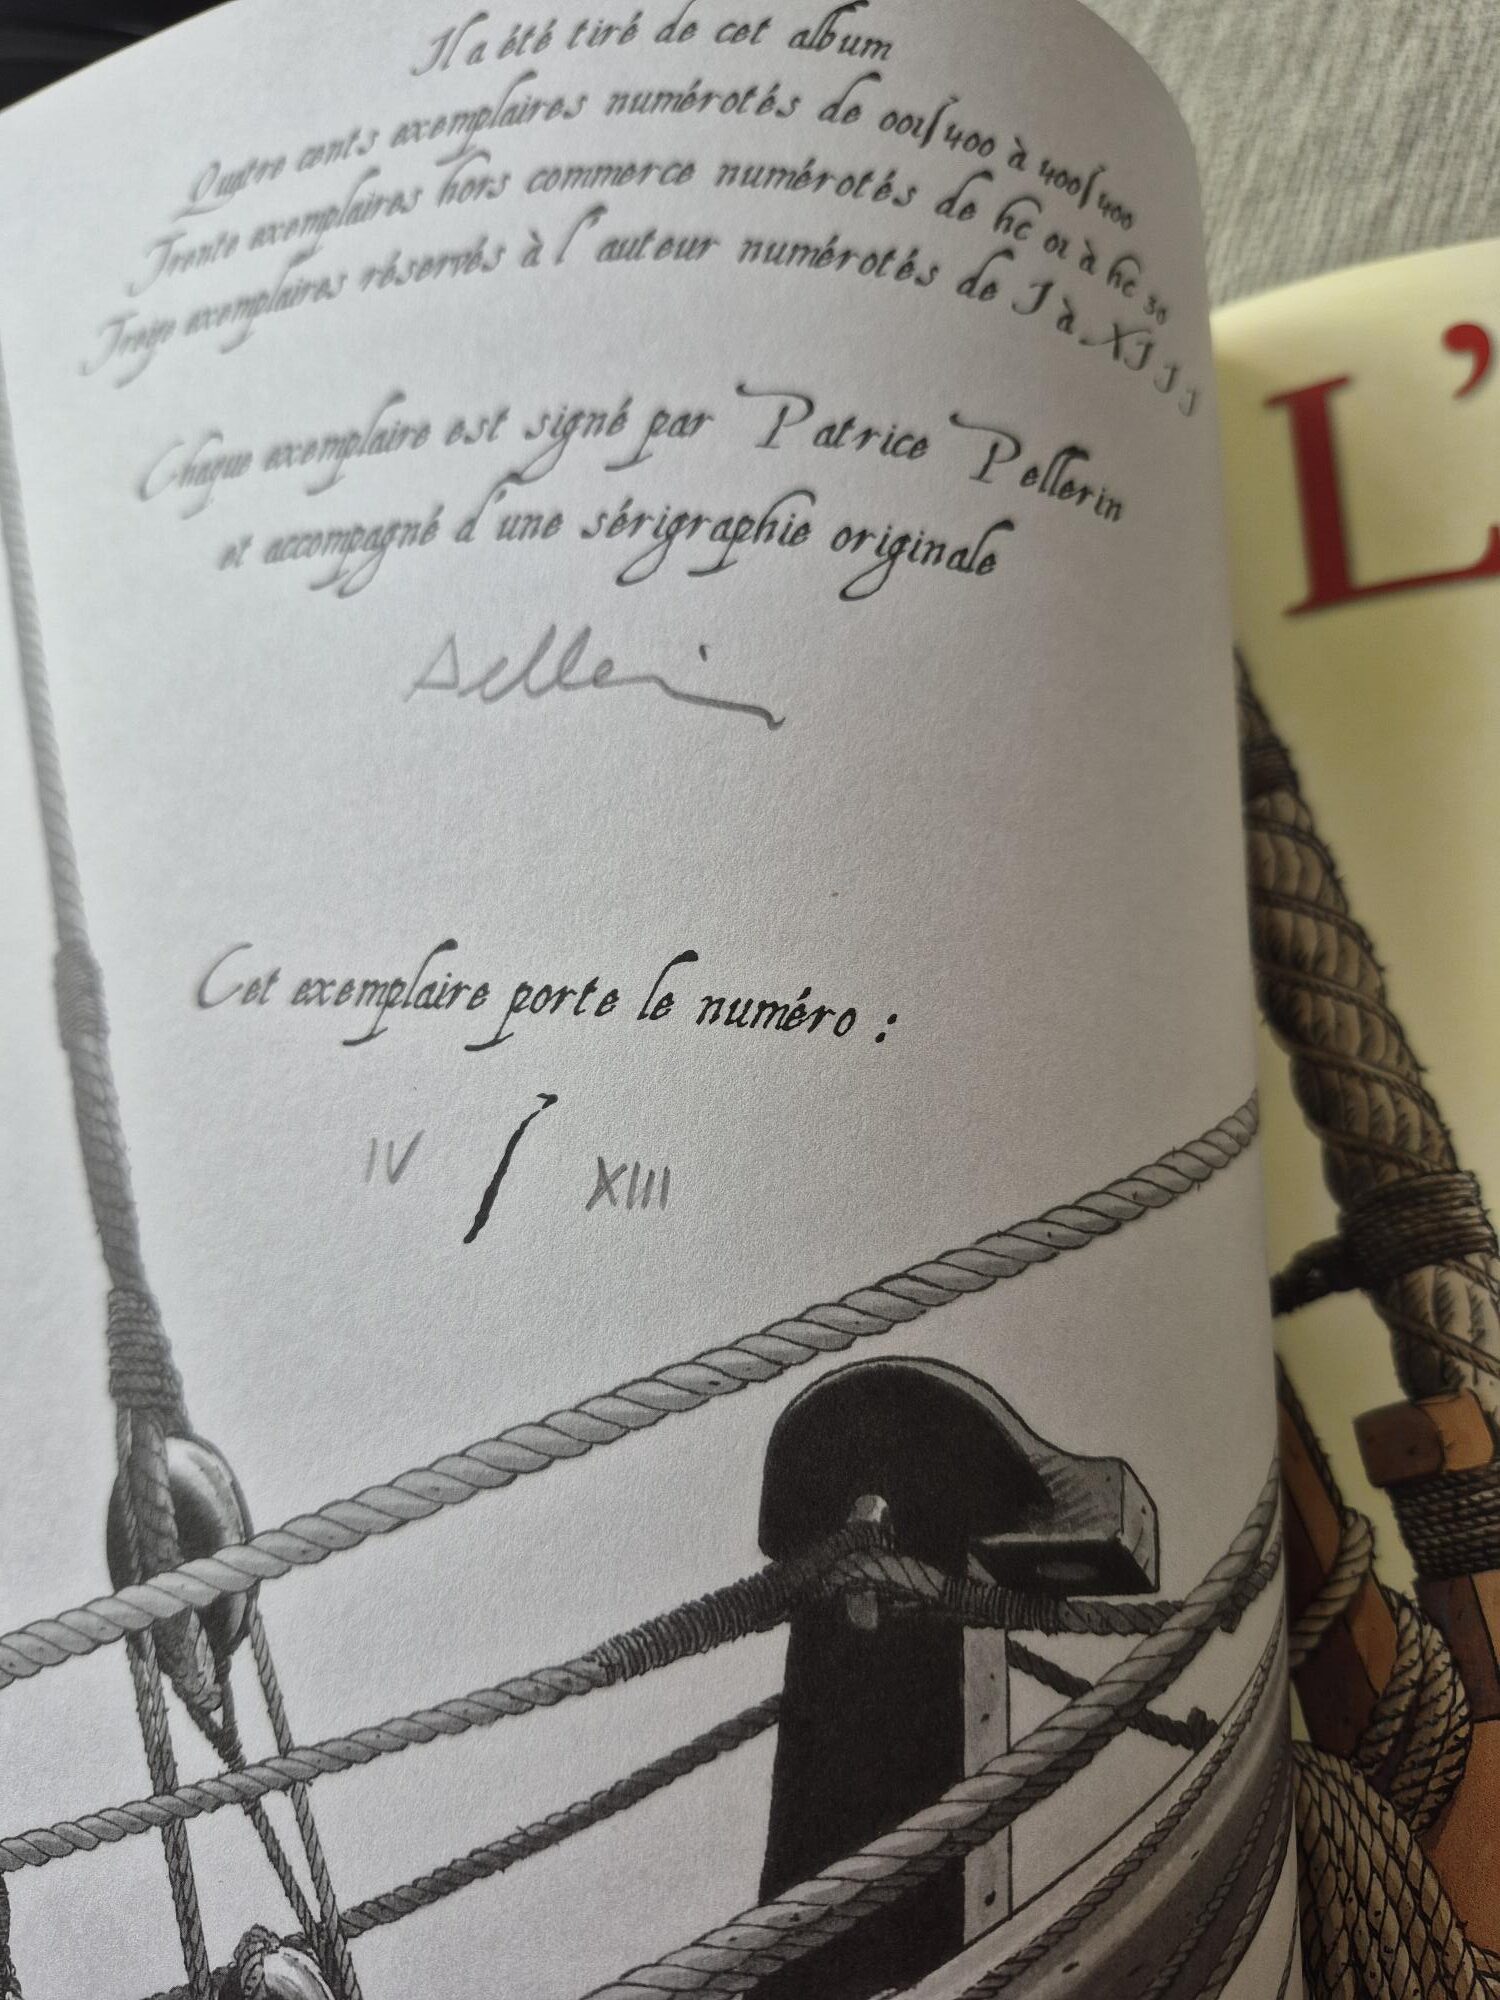 Il a été tiré de cet album
Quatre cents exemplaires numérotés de 001/400 à 400/400
Trente exemplaires hors commerce numérotés de hc 01 à hc 30
Treize exemplaires réservés à l'auteur numérotés de I à XIII
Chaque exemplaire est signé par Patrice Pellerin
et accompagné d'une sérigraphie originale
Pellerin
Cet exemplaire porte le numéro :
IV / XIII
L'